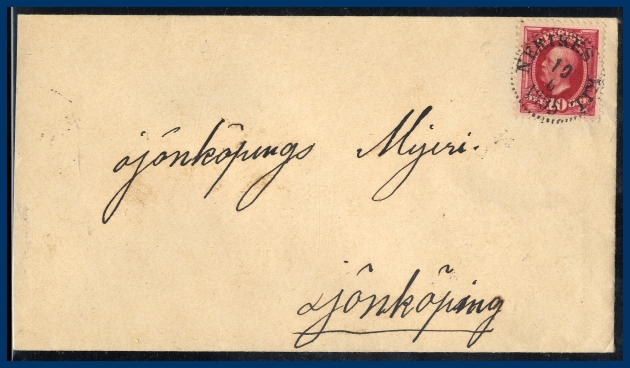 10
10
Jönköpings Mejeri.
Jönköping